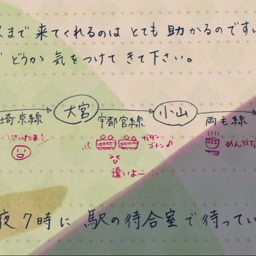 まで来てくれるのは とても 助かるのです
どうか 気をつけて きて下さい。
埼京線 大宮 宇都宮線 小山 両毛線
さいたま! ガタン ゴトン♪
遠いよー
夜 7時に 駅の待合室で待ってい